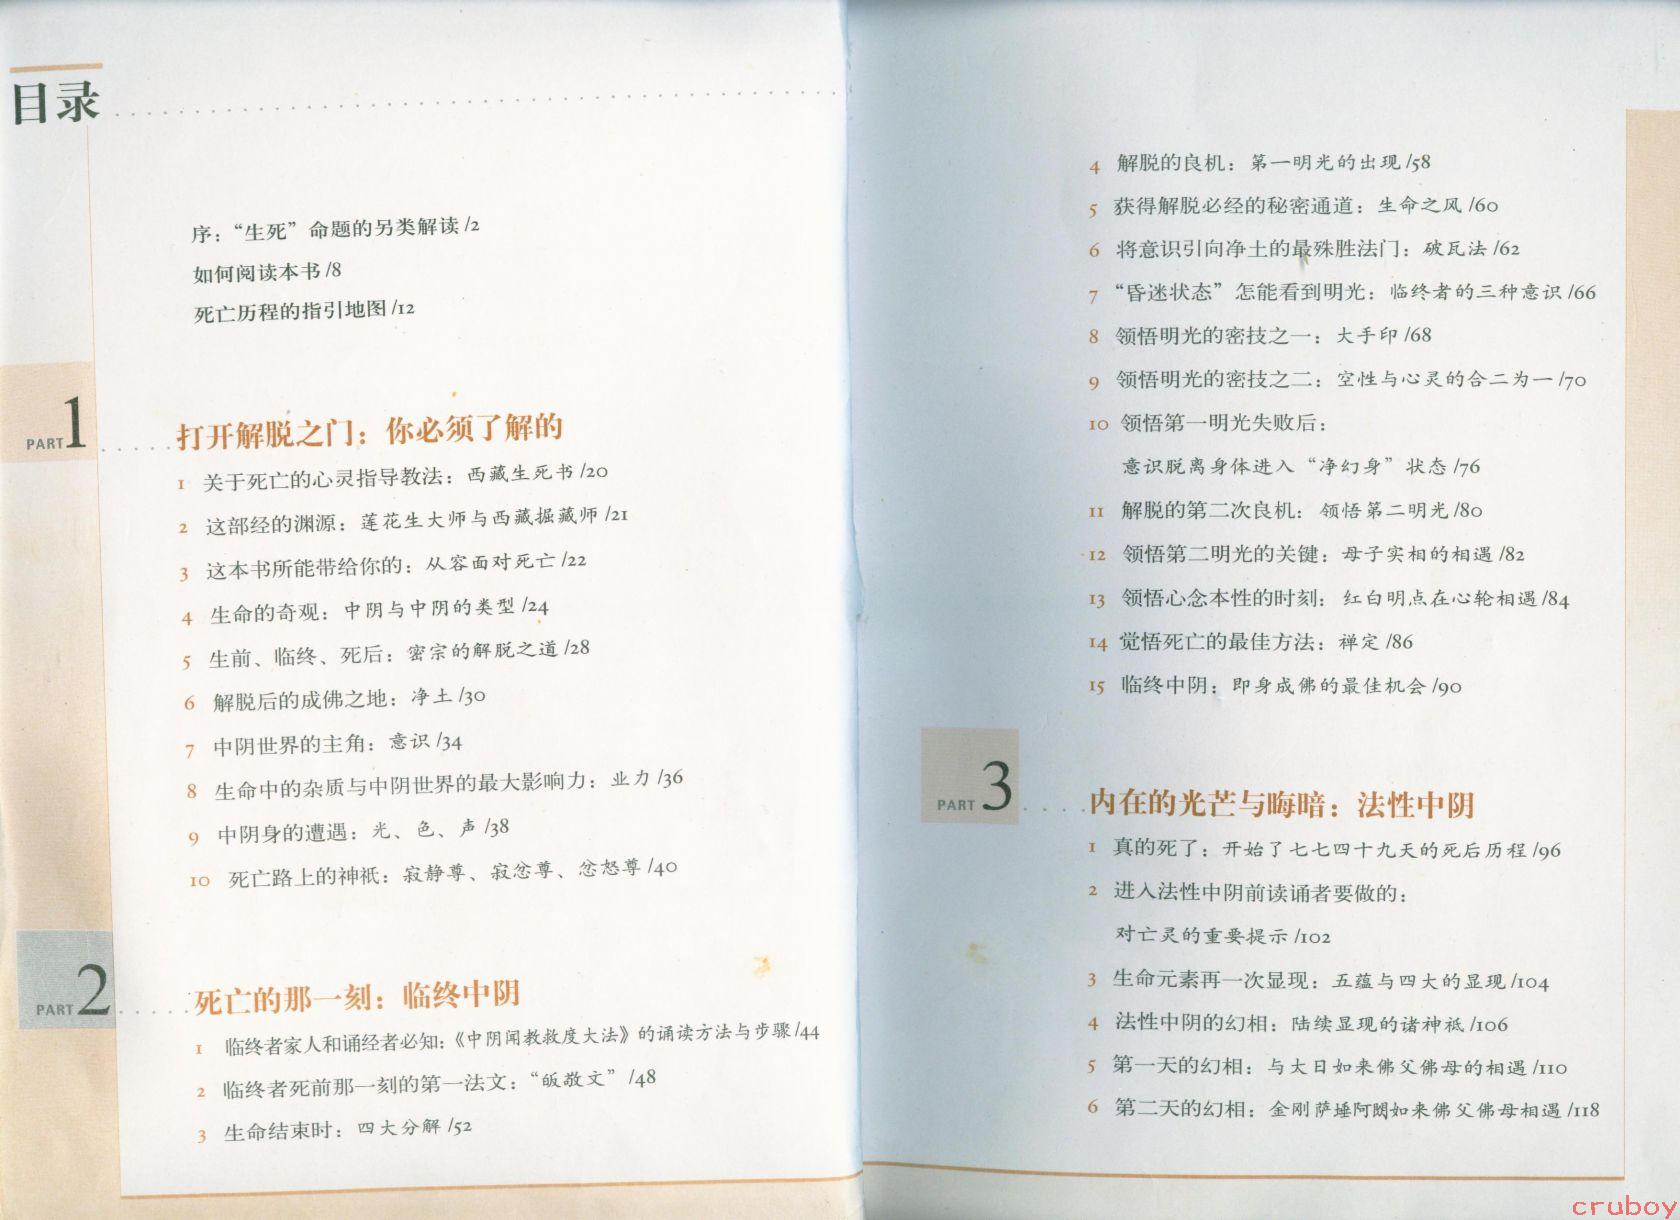 目录
序：“生死”命题的另类解读 /2
如何阅读本书 /8
死亡历程的指引地图 /12
PART 1
打开解脱之门：你必须了解的
1 关于死亡的心灵指导教法：西藏生死书 /20
2 这部经的渊源：莲花生大师与西藏掘藏师 /21
3 这本书所能带给你的：从容面对死亡 /22
4 生命的奇观：中阴与中阴的类型 /24
5 生前、临终、死后：密宗的解脱之道 /28
6 解脱后的成佛之地：净土 /30
7 中阴世界的主角：意识 /34
8 生命中的杂质与中阴世界的最大影响力：业力 /36
9 中阴身的遭遇：光、色、声 /38
10 死亡路上的神祇：寂静尊、寂忿尊、忿怒尊 /40
PART 2
死亡的那一刻：临终中阴
1 临终者家人和诵经者必知：《中阴闻教救度大法》的诵读方法与步骤 /44
2 临终者死前那一刻的第一法文：“皈敬文” /48
3 生命结束时：四大分解 /52
4 解脱的良机：第一明光的出现 /58
5 获得解脱必经的秘密通道：生命之风 /60
6 将意识引向净土的最殊胜法门：破瓦法 /62
7 “昏迷状态”怎能看到明光：临终者的三种意识 /66
8 领悟明光的密技之一：大手印 /68
9 领悟明光的密技之二：空性与心灵的合二为一 /70
10 领悟第一明光失败后：
意识脱离身体进入“净幻身”状态 /76
11 解脱的第二次良机：领悟第二明光 /80
12 领悟第二明光的关键：母子实相的相遇 /82
13 领悟心念本性的时刻：红白明点在心轮相遇 /84
14 觉悟死亡的最佳方法：禅定 /86
15 临终中阴：即身成佛的最佳机会 /90
PART 3
内在的光芒与晦暗：法性中阴
1 真的死了：开始了七七四十九天的死后历程 /96
2 进入法性中阴前读诵者要做的：
对亡灵的重要提示 /102
3 生命元素再一次显现：五蕴与四大的显现 /104
4 法性中阴的幻相：陆续显现的诸神祇 /106
5 第一天的幻相：与大日如来佛父佛母的相遇 /110
6 第二天的幻相：金刚萨埵阿閦如来佛父佛母相遇 /118
cruboy